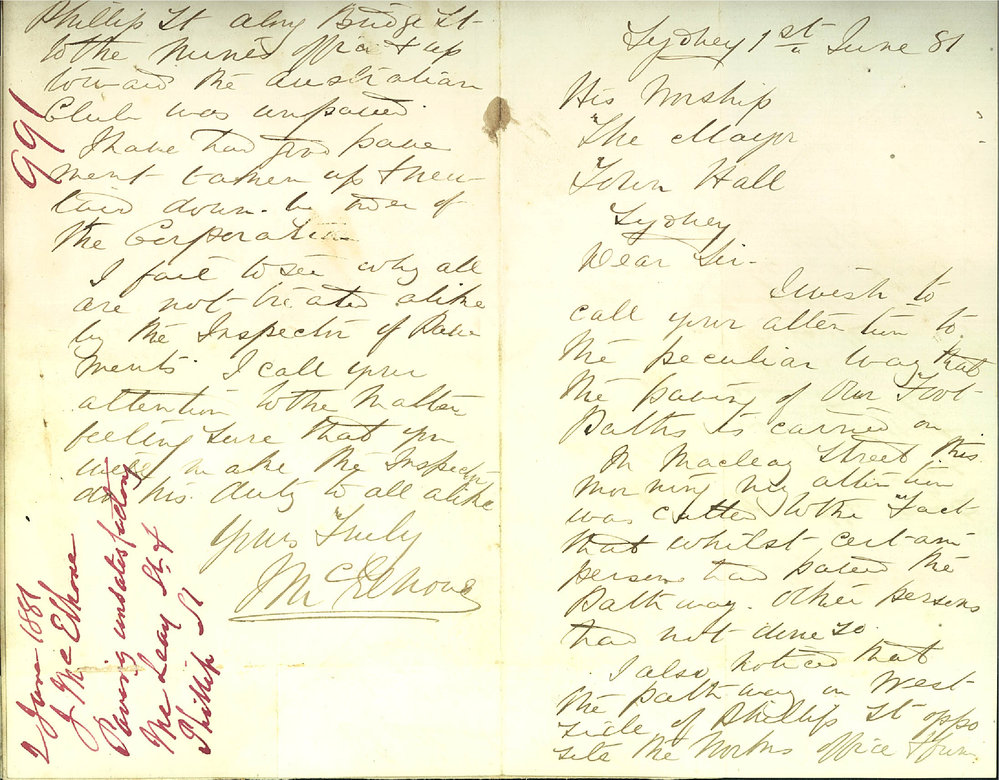 Sydney 1st June 81
His Worship
The Mayor
Town Hall
Sydney
Dear Sir.
I wish to
call your attention to
the peculiar way that
the paving of our Foot
Paths is carried on
In Macleay Street this
morning my attention
was called to the Fact
that whilst certain
persons had paved the
Pathway. Other persons
had not done so.
I also noticed that
the pathway on West
side of Phillip St oppo
site the Works office & from
Phillip St along Bridge St
to the Mines office & up
toward the Australian
Club was unpaved.
I have had good pave
ment taken up & new
laid down. by order of
the Corporation
I fail to see why all
are not treated alike
by the Inspector of Pave
ments. I call your
attention to the Matter
feeling sure that you
will make the Inspector
do his duty to all alike
Yours Truly
J McElhone
991
2 June 1881
J McElhone
Paving unsatisfactory
McLeay St. &
Phillip St